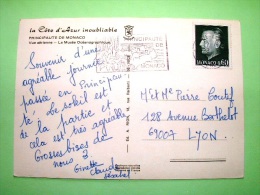 la Côte d'Azur inoubliable
PRINCIPAUTE DE MONACO
Vue aérienne - Le Musée Océanographique
PRINCIPAUTÉ
DE
MONACO
0,60
Souvenir d'une
agréable journée
passée en Principau
té. Le soleil est
de la partie et
cela est très agréable
Grosses bises de
nous 3
Ginette
Claude
M. et Mme Pierre
128 avenue Berthelot
69007 LYON.